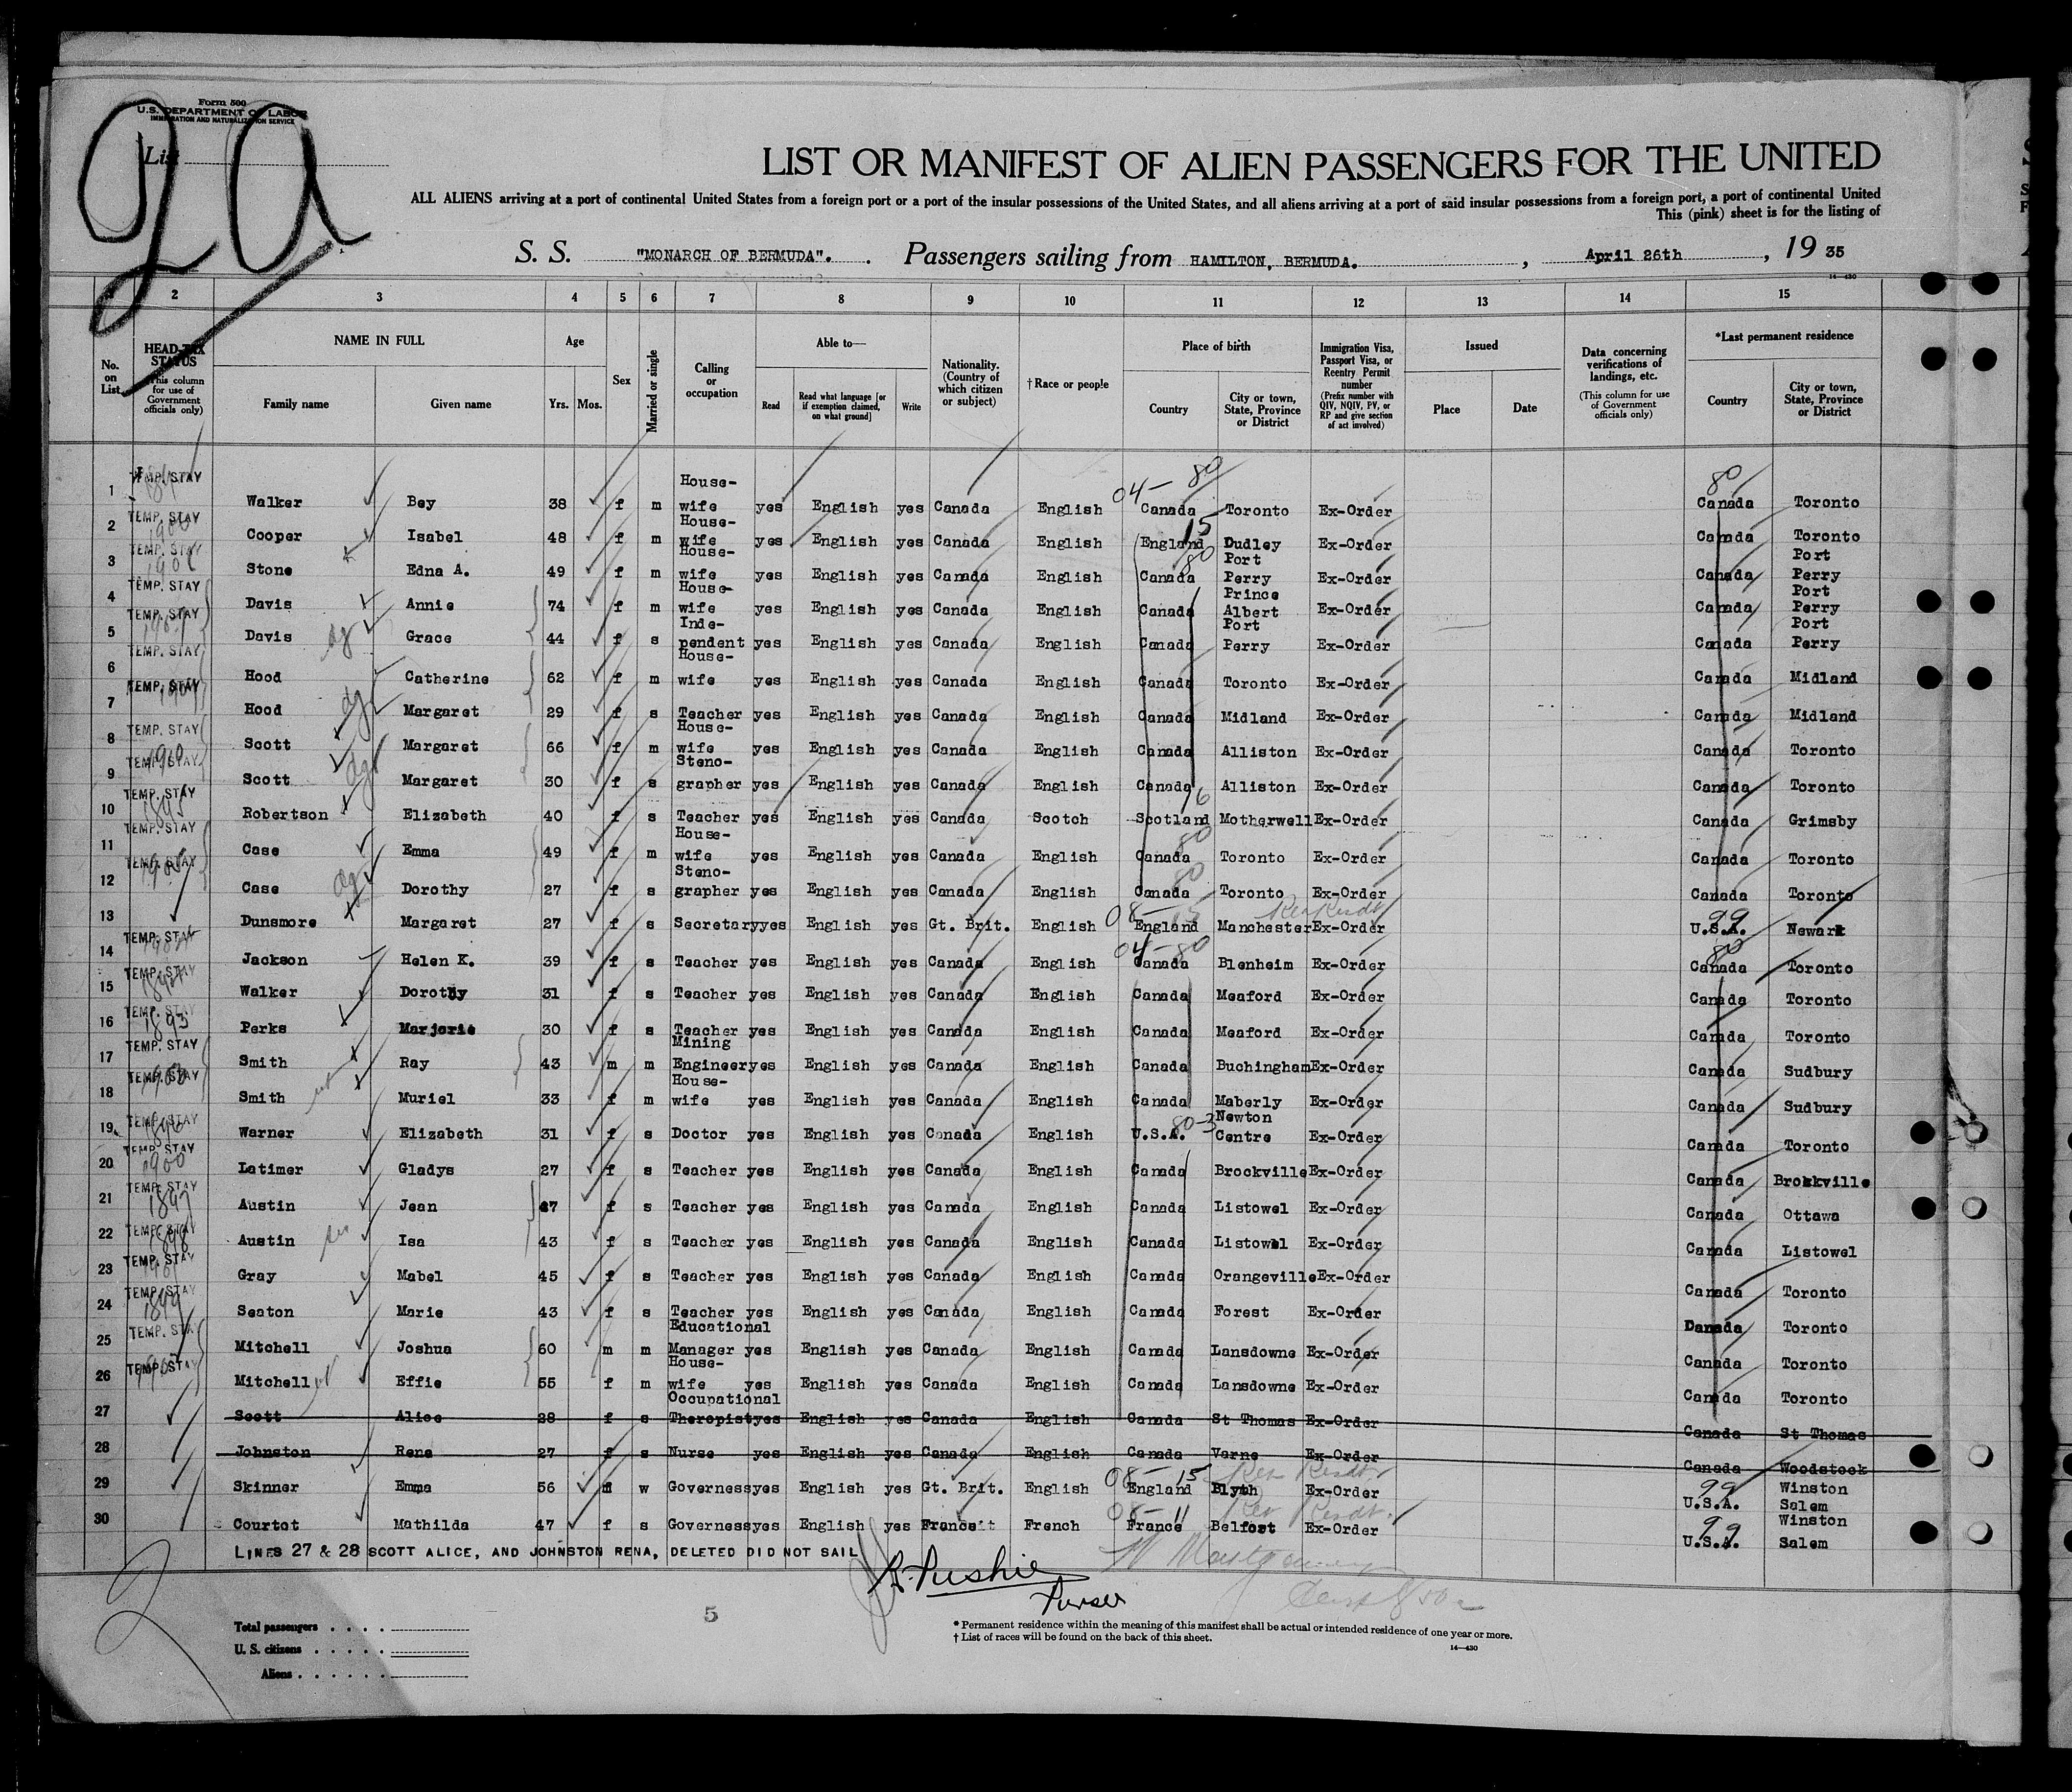 Form 500
U.S. DEPARTMENT OF LABOR
IMMIGRATION AND NATURALIZATION SERVICE
List
LIST OR MANIFEST OF ALIEN PASSENGERS FOR THE UNITED
ALL ALIENS arriving at a port of continental United States from a foreign port or a port of the insular possessions of the United States, and all aliens arriving at a port of said insular possessions from a foreign port, a port of continental United
This (pink) sheet is for the listing of
S. S. "MONARCH OF BERMUDA". Passengers sailing from HAMILTON, BERMUDA. , April 26th , 19 35
14—430
2 3 4 5 6 7 8 9 10 11 12 13 14 15
No. on List
HEAD-TAX STATUS (This column for use of Government officials only)
NAME IN FULL Family name Given name
Age Yrs. Mos.
Sex
Married or single
Calling or occupation
Able to— Read Read what language [or if exemption claimed, on what ground] Write
Nationality. (Country of which citizen or subject)
†Race or people
Place of birth Country City or town, State, Province or District
Immigration Visa, Passport Visa, or Reentry Permit number (Prefix number with QIV, NQIV, PV, or RP and give section of act involved)
Issued Place Date
Data concerning verifications of landings, etc. (This column for use of Government officials only)
*Last permanent residence Country City or town, State, Province or District
1 TEMP. STAY Walker Bey 38 f m House-wife yes English yes Canada English 04- 80 Canada Toronto Ex-Order 80 Canada Toronto
2 TEMP. STAY Cooper Isabel 48 f m House-wife yes English yes Canada English 15 England Dudley Ex-Order Canada Toronto
3 TEMP. STAY Stone Edna A. 49 f m House-wife yes English yes Canada English 80 Canada Port Perry Ex-Order Canada Port Perry
4 TEMP. STAY Davis Annie 74 f m House-wife yes English yes Canada English Canada Prince Albert Ex-Order Canada Port Perry
5 TEMP. STAY Davis Grace 44 f s Inde-pendent yes English yes Canada English Canada Port Perry Ex-Order Canada Port Perry
6 TEMP. STAY Hood Catherine 62 f m House-wife yes English yes Canada English Canada Toronto Ex-Order Canada Midland
7 TEMP. STAY Hood Margaret 29 f s Teacher yes English yes Canada English Canada Midland Ex-Order Canada Midland
8 TEMP. STAY Scott Margaret 66 f m House-wife yes English yes Canada English Canada Alliston Ex-Order Canada Toronto
9 TEMP. STAY Scott Margaret 30 f s Steno-grapher yes English yes Canada English Canada Alliston Ex-Order Canada Toronto
10 TEMP. STAY Robertson Elizabeth 40 f s Teacher yes English yes Canada Scotch 16 Scotland Motherwell Ex-Order Canada Grimsby
11 TEMP. STAY Case Emma 49 f m House-wife yes English yes Canada English 80 Canada Toronto Ex-Order Canada Toronto
12 TEMP. STAY Case Dorothy 27 f s Steno-grapher yes English yes Canada English 80 Canada Toronto Ex-Order Canada Toronto
13 Dunsmore Margaret 27 f s Secretary yes English yes Gt. Brit. English 08- 15 England Manchester Ex-Order 99 U.S.A. Newark
14 TEMP. STAY Jackson Helen K. 39 f s Teacher yes English yes Canada English 04-80 Canada Blenheim Ex-Order 80 Canada Toronto
15 TEMP. STAY Walker Dorothy 31 f s Teacher yes English yes Canada English Canada Meaford Ex-Order Canada Toronto
16 TEMP. STAY Perks Marjorie 30 f s Teacher yes English yes Canada English Canada Meaford Ex-Order Canada Toronto
17 TEMP. STAY Smith Ray 43 m m Mining Engineer yes English yes Canada English Canada Buchingham Ex-Order Canada Sudbury
18 TEMP. STAY Smith Muriel 33 f m House-wife yes English yes Canada English Canada Maberly Ex-Order Canada Sudbury
19 TEMP. STAY Warner Elizabeth 31 f s Doctor yes English yes Canada English 80-3 U.S.A. Newton Centre Ex-Order Canada Toronto
20 TEMP. STAY Latimer Gladys 27 f s Teacher yes English yes Canada English Canada Brockville Ex-Order Canada Brokkville
21 TEMP. STAY Austin Jean 47 f s Teacher yes English yes Canada English Canada Listowel Ex-Order Canada Ottawa
22 TEMP. STAY Austin Isa 43 f s Teacher yes English yes Canada English Canada Listowel Ex-Order Canada Listowel
23 TEMP. STAY Gray Mabel 45 f s Teacher yes English yes Canada English Canada Orangeville Ex-Order Canada Toronto
24 TEMP. STAY Seaton Marie 43 f s Teacher yes English yes Canada English Canada Forest Ex-Order Danada Toronto
25 TEMP. STAY Mitchell Joshua 60 m m Educational Manager yes English yes Canada English Canada Lansdowne Ex-Order Canada Toronto
26 TEMP. STAY Mitchell Effie 55 f m House-wife yes English yes Canada English Canada Lansdowne Ex-Order Canada Toronto
27 Scott Alice 28 f s Occupational Therapist yes English yes Canada English Canada St Thomas Ex-Order Canada St Thomas
28 Johnston Rena 27 f s Nurse yes English yes Canada English Canada Varna Ex-Order Canada Woodstock
29 Skinner Emma 56 f w Governess yes English yes Gt. Brit. English 08- 15 England Blyth Ex-Order 99 U.S.A. Winston Salem
30 Courtot Mathilda 47 f s Governess yes English yes France French 08- 11 France Belfort Ex-Order 99 U.S.A. Winston Salem
LINES 27 & 28 SCOTT ALICE, AND JOHNSTON RENA, DELETED DID NOT SAIL
Purser
5
Total passengers
U. S. citizens
Aliens
* Permanent residence within the meaning of this manifest shall be actual or intended residence of one year or more.
† List of races will be found on the back of this sheet.
14—430